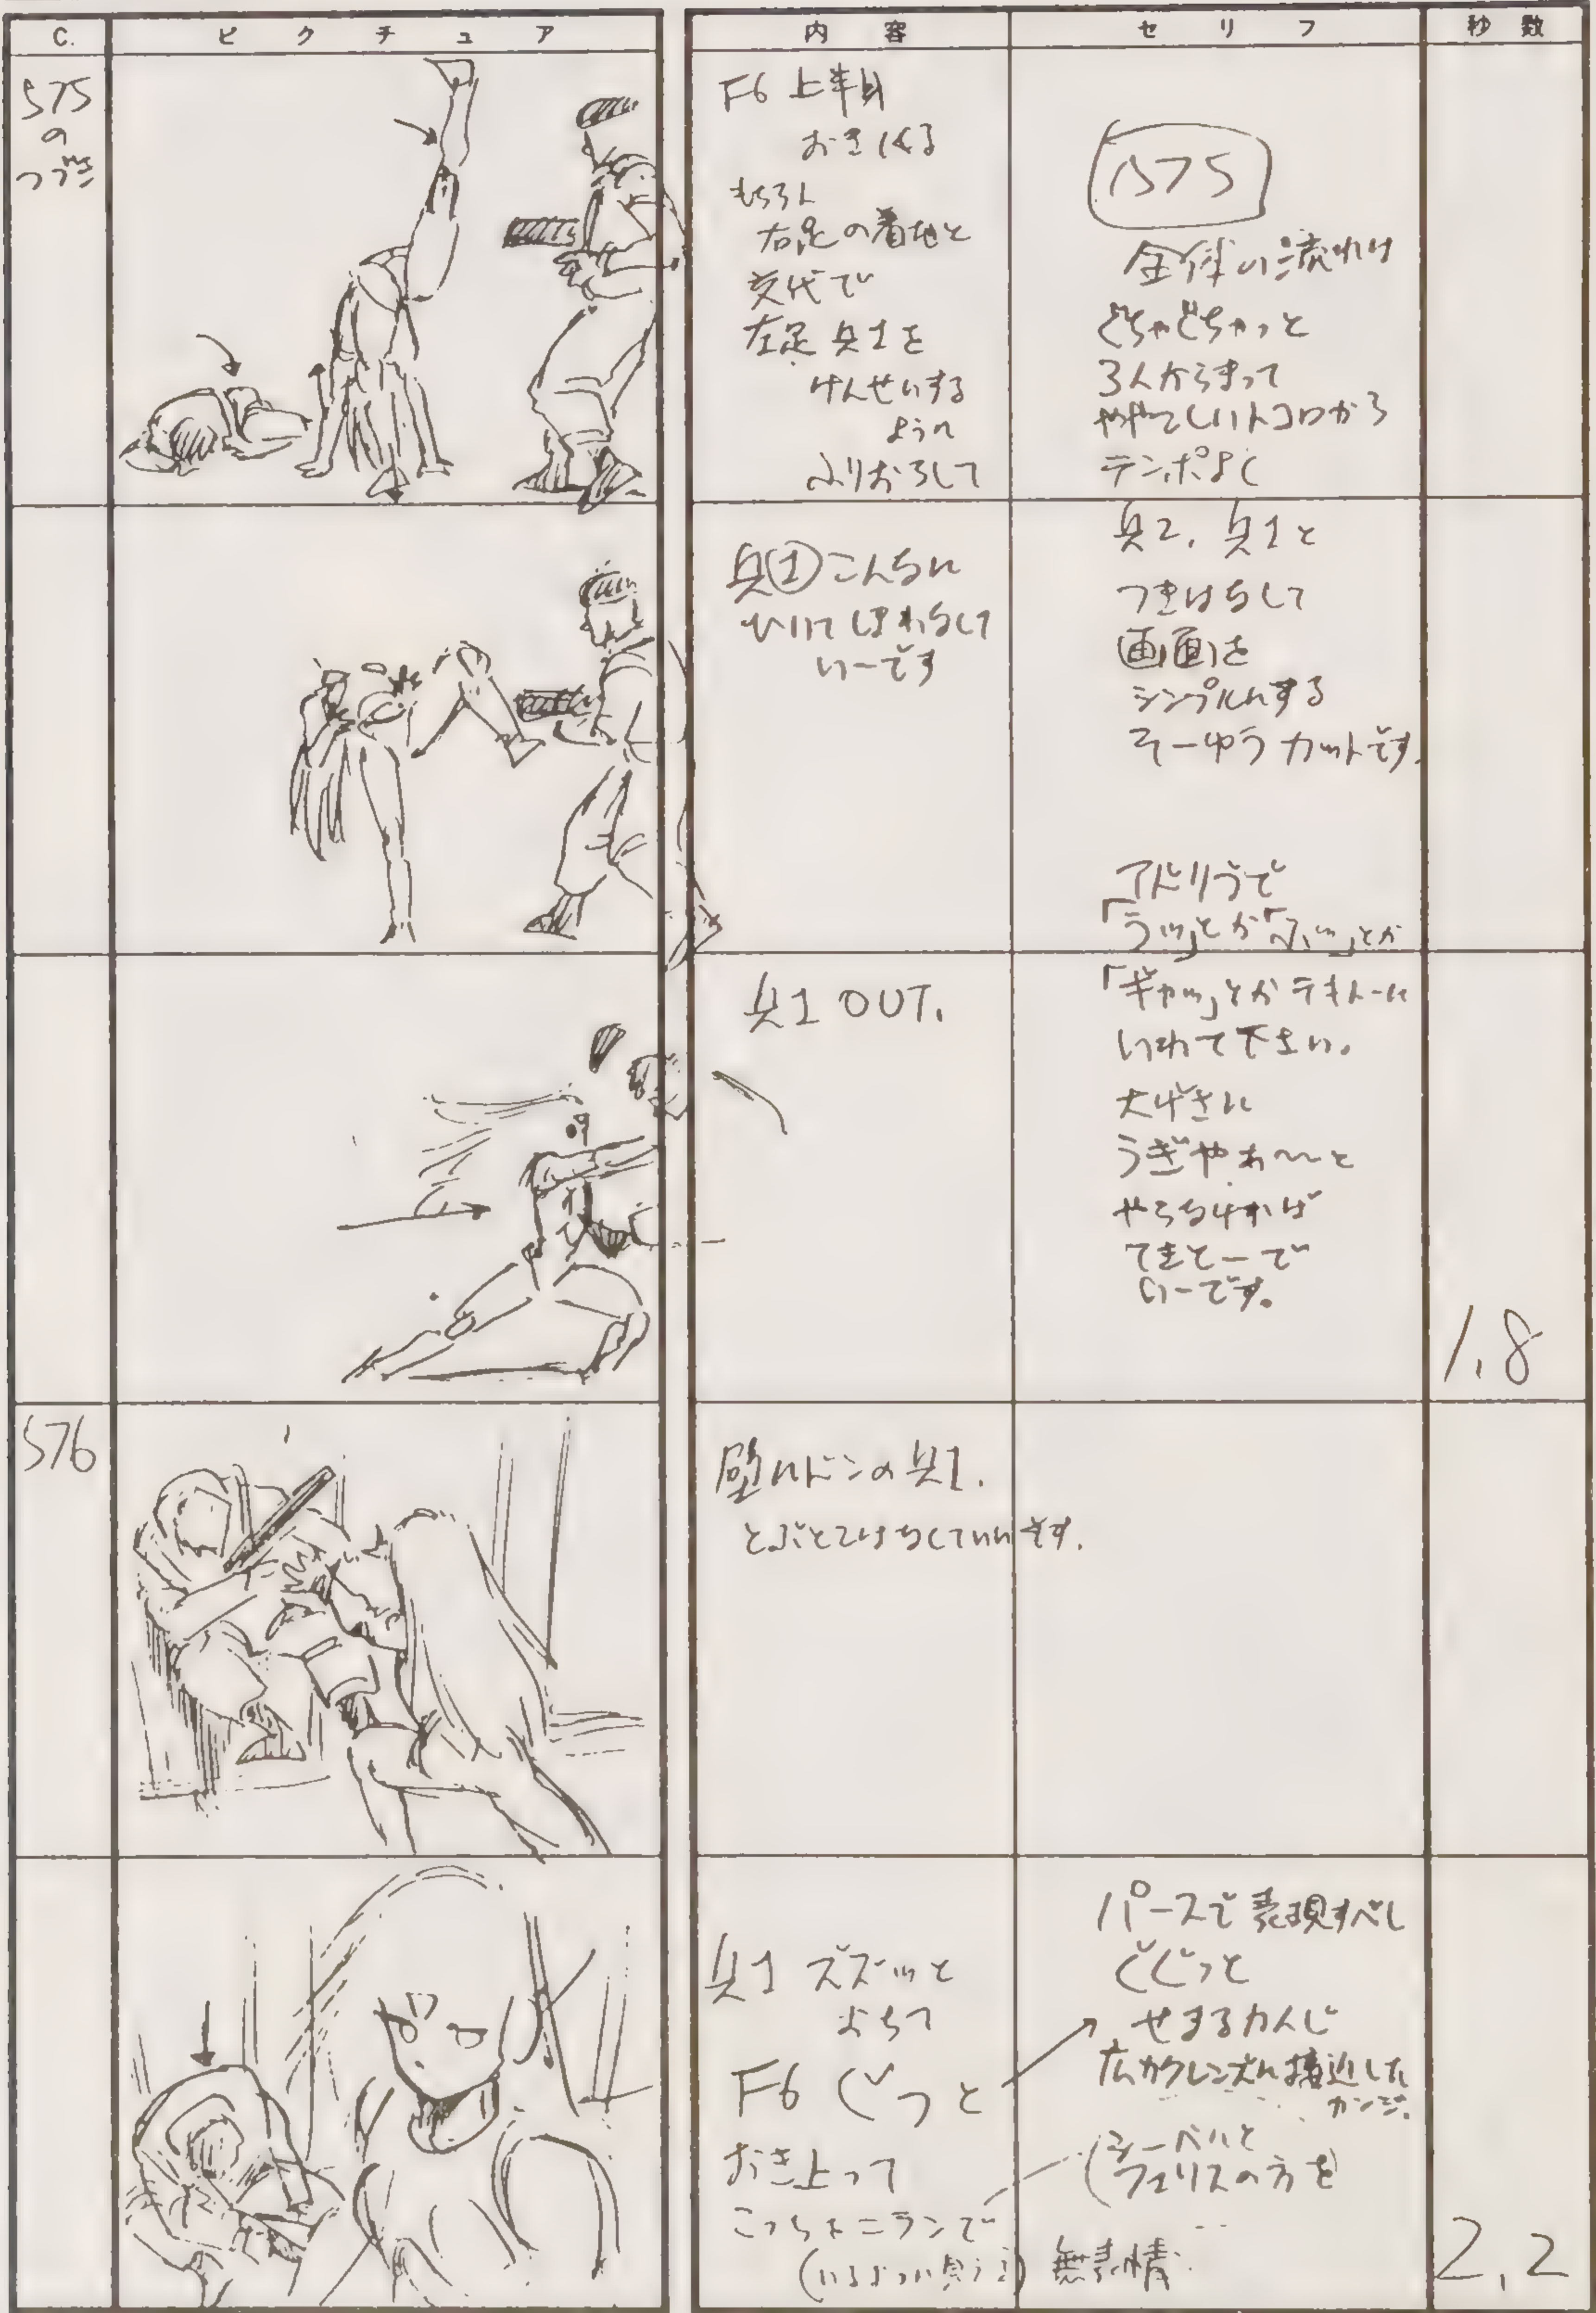 C. ピクチュア 内容 セリフ 秒数
575
の
つづき
F6 上半身
おきてくる
もちろん
右足の着地と
交代で
左足 兵1を
けんせいする
ように
ふりおろして
575
全体の流れは
ぐちゃぐちゃっと
3人からまって
ややこしいトコロから
テンポよく
兵①こんなに
ひいてしまわなくて
いーです
兵2、兵1と
つきはなして
画面を
シンプルにする
そーゆうカットです.
アドリブで
「うッ」とか「ふッ」とか
兵1 OUT.
「ギャッ」とか テキトーに
いわせて下さい。
大げさに
うぎゃあ〜〜と
やらなければ
てきとーで
いーです。
1.8
576
壁にドンの兵1.
兵1 ズズッと
おちて
F6 ぐっと
おき上って
こっちをニランで
無表情
パースで表現すべし
ぐぐっと
せまるカんじ
広カクレンズに接近した
カンジ.
フェリスの方を
2.2